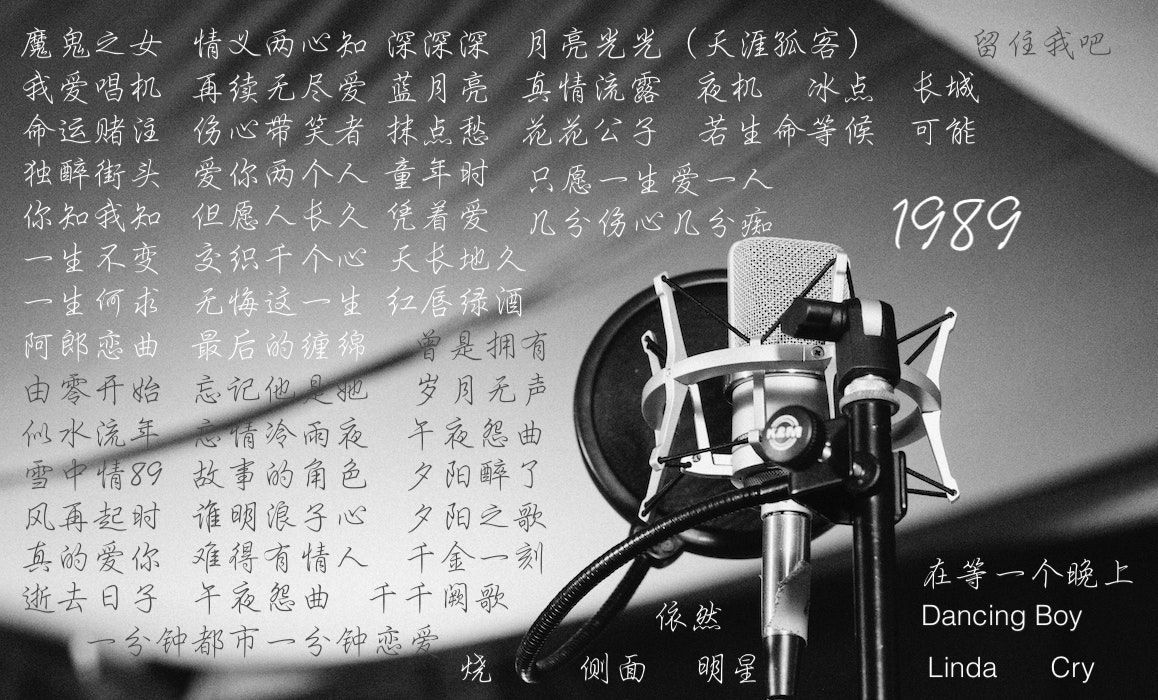 魔鬼之女 情义两心知 深深深 月亮光光（天涯孤客） 留住我吧
我爱唱机 再续无尽爱 蓝月亮 真情流露 夜机 冰点 长城
命运赌注 伤心带笑者 抹点愁 花花公子 若生命等候 可能
独醉街头 爱你两个人 童年时 只愿一生爱一人
你知我知 但愿人长久 凭着爱 几分伤心几分痴
1989
一生不变 交织千个心 天长地久
一生何求 无悔这一生 红唇绿酒
阿郎恋曲 最后的缠绵 曾是拥有
由零开始 忘记他是她 岁月无声
似水流年 忘情冷雨夜 午夜怨曲
雪中情89 故事的角色 夕阳醉了
风再起时 谁明浪子心 夕阳之歌
真的爱你 难得有情人 千金一刻
逝去日子 午夜怨曲 千千阙歌
一分钟都市一分钟恋爱
在等一个晚上
依然 Dancing Boy
烧 侧面 明星 Linda Cry